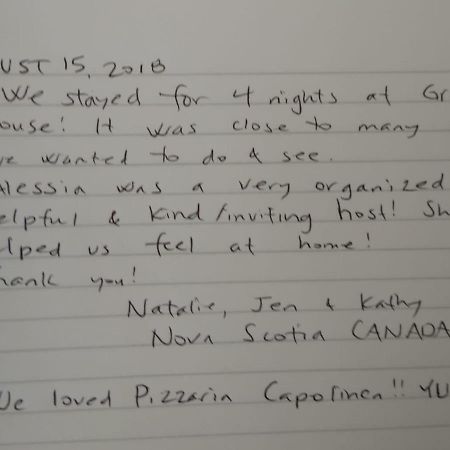 UST 15, 2018
We stayed for 4 nights at Gr
ouse! It was close to many
we wanted to do & see.
Alessia was a very organized
elpful & kind/inviting host! Sh
elped us feel at home!
hank you!
Natalie, Jen & Kathy
Nova Scotia CANADA
We loved Pizzaria Capolinea!! YU